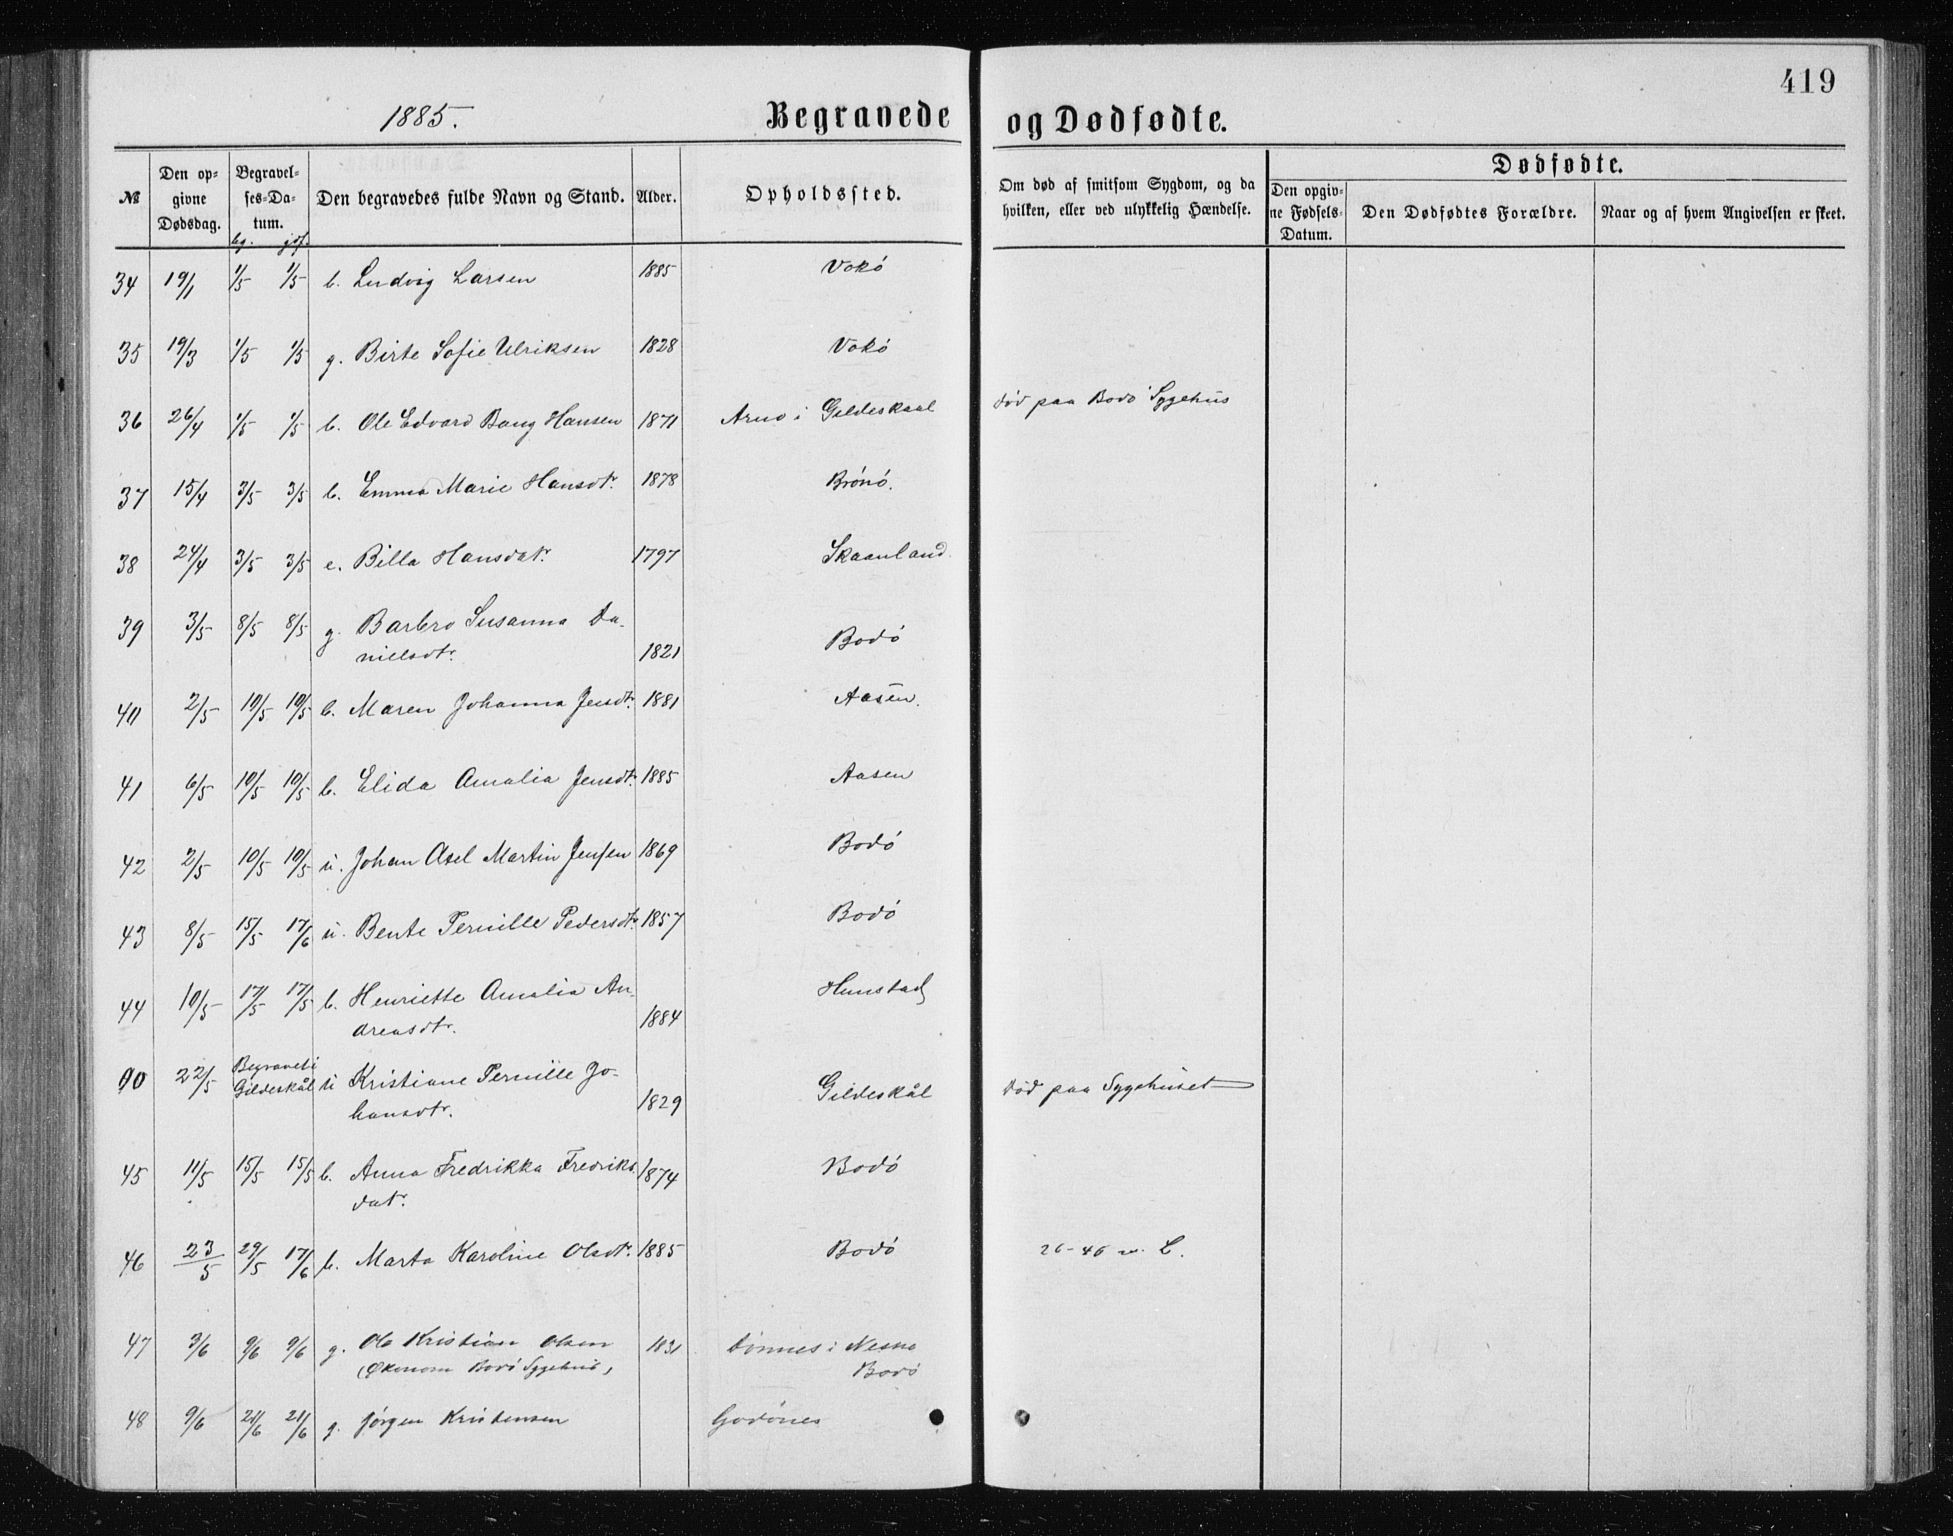 419
1885.
Begravede og Dødfødte.
№
Den opgivne Dødsdag.
Begravelses-Datum.
bg. jdf.
Den begravedes fulde Navn og Stand.
Alder.
Opholdssted.
Om død af smitsom Sygdom, og da hvilken, eller ved ulykkelig Hændelse.
Dødfødte.
Den opgivne Fødsels-Datum.
Den Dødfødtes Forældre.
Naar og af hvem Angivelsen er skeet.
34 19/1 1/5 1/5 b. Ludvig Larsen 1885 Vokó
35 19/3 1/5 1/5 g. Birte Sofie Ulriksen 1828 Vokó
36 26/4 1/5 1/5 b. Ole Edvard Bang Hansen 1871 Arnø i Gildeskaal død paa Bodó Sygehus
37 15/4 3/5 3/5 b. Emma Marie Hansdtr. 1878 Brónó.
38 24/4 3/5 3/5 e. Billa Hansdatr. 1797 Skaanland.
39 3/5 8/5 8/5 g. Barbro Susanna Da-
nielsdtr. 1821 Bodó
40 2/5 10/5 10/5 b. Maren Johanna Jensdtr. 1881 Aasen.
41 6/5 10/5 10/5 b. Elida Amalia Jensdtr. 1885 Aasen
42 2/5 10/5 10/5 u. Johan Axel Martin Jensen 1869 Bodó
43 8/5 15/5 17/6 u. Bente Pernille Pedersdtr. 1857 Bodó
44 10/5 17/5 17/5 b. Henriette Amalia An-
dreasdtr. 1884 Hunstad
00 22/5 Begravet i Gildeskål u Kristiane Pernille Jo-
hansdtr. 1829 Gildeskål død paa Sygehuset
45 11/5 15/5 15/5 b. Anna Fredrikka Fredriks-
datr. 1874 Bodó
46 23/5 29/5 17/6 b. Marta Karoline Olsdtr. 1885 Bodó 26-46 L.
47 3/6 9/6 9/6 g. Ole Kristian Olsen 1831 Dónnes i Nesna
(Økonom Bodó Sygehus) Bodó
48 9/6 21/6 21/6 g. Jórgen Kristensen Godónes